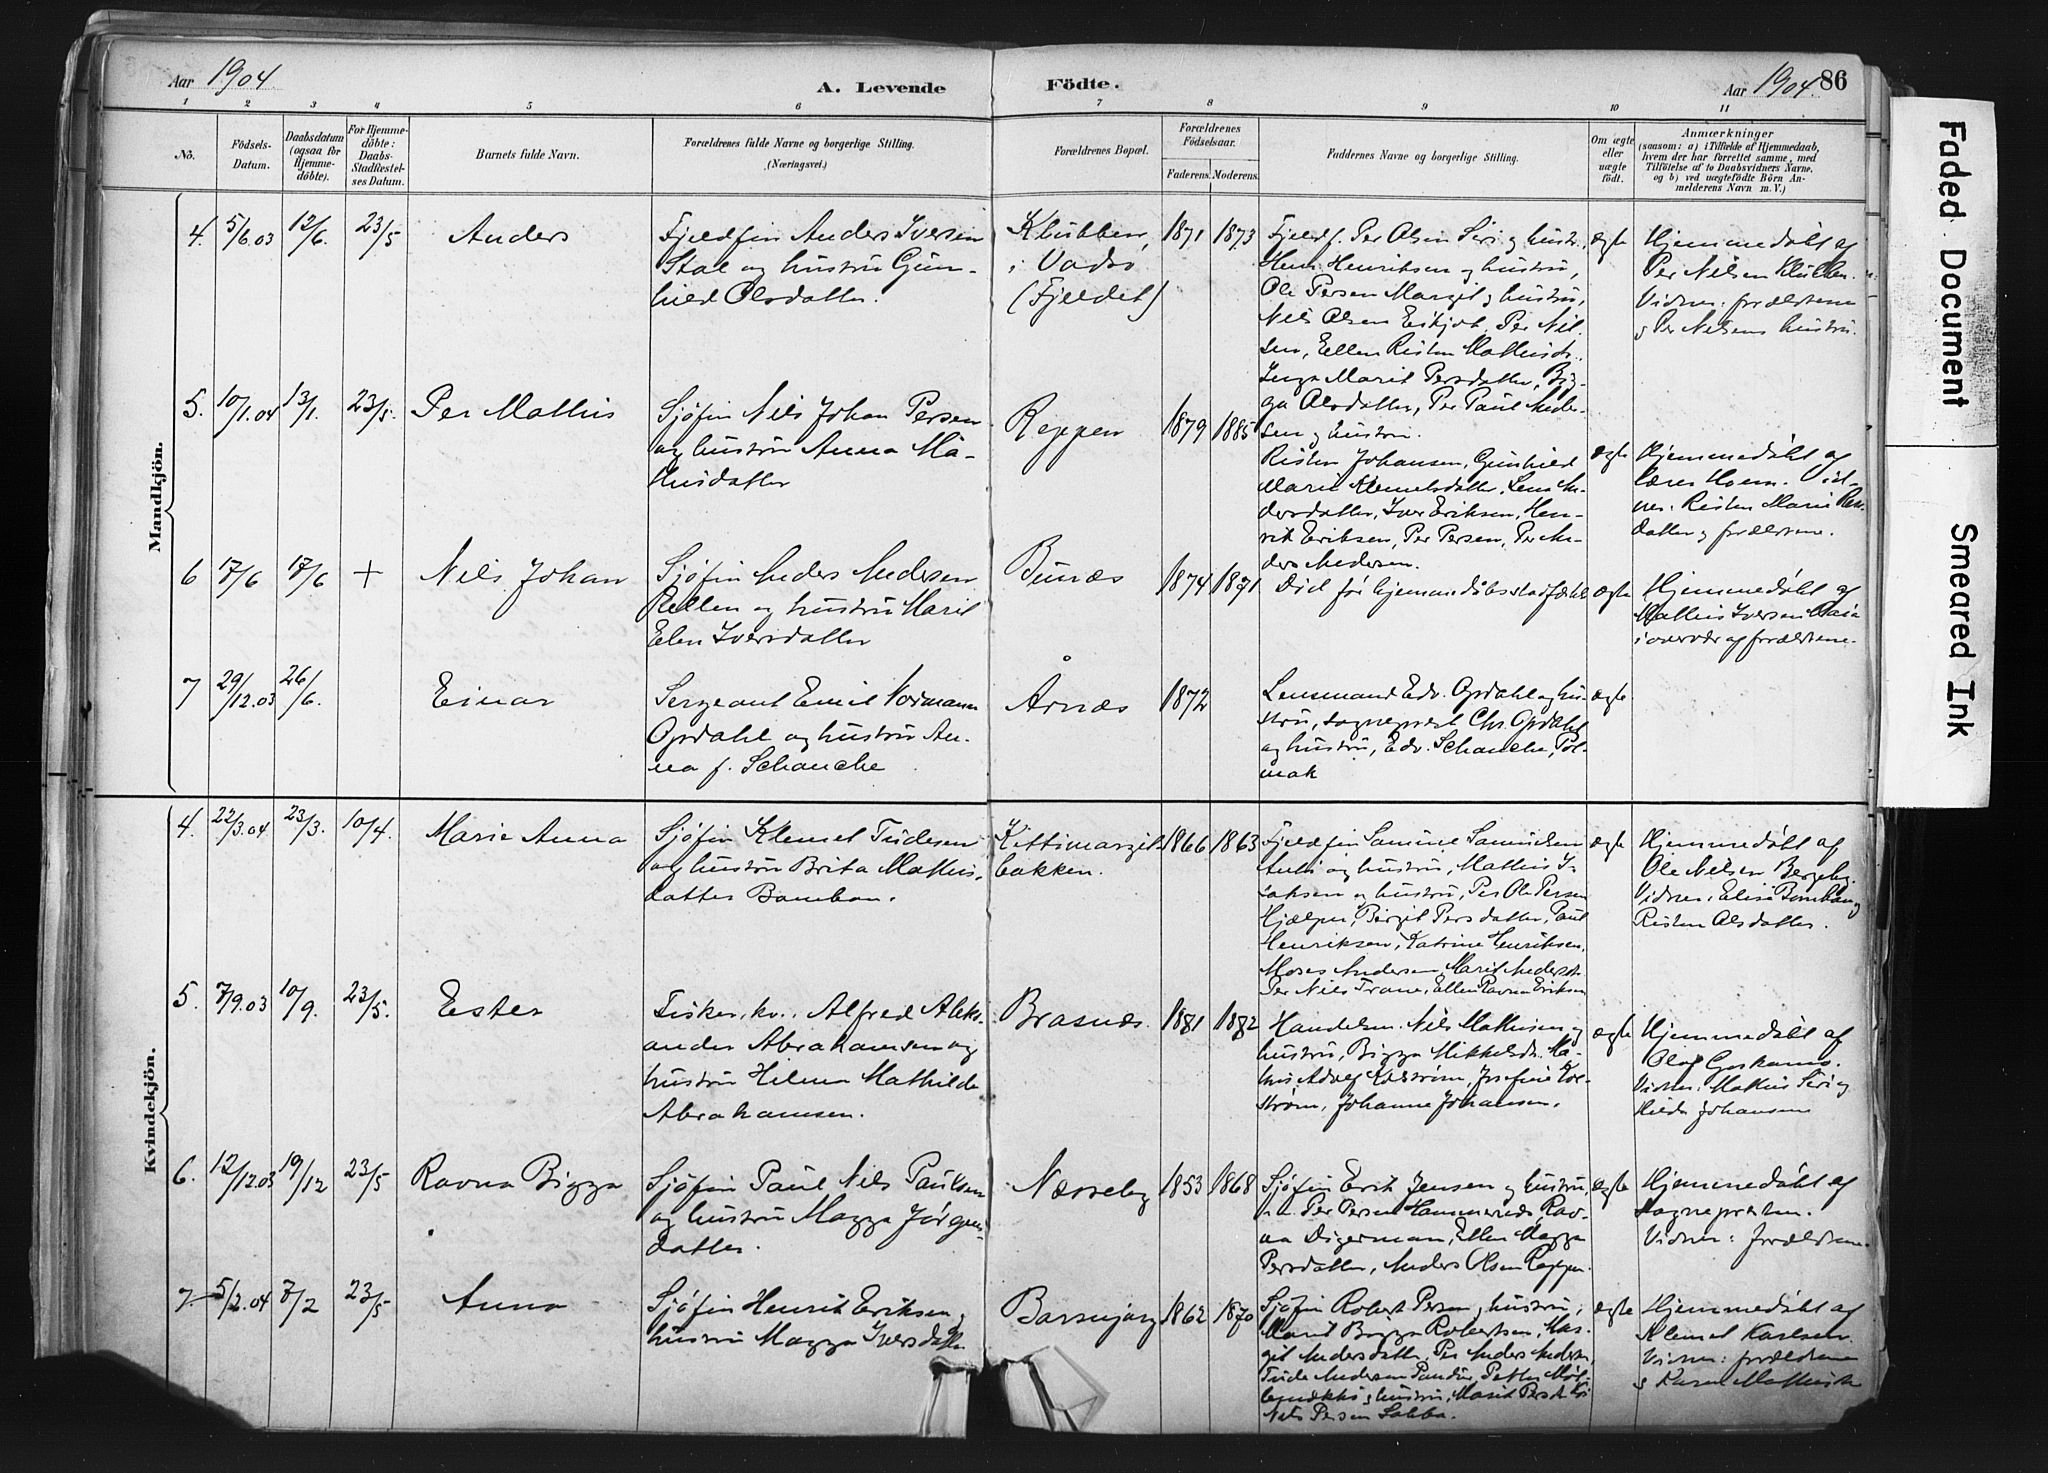 Aar 1904
A. Levende
Födte.
Aar 1904.
86
1 2 3 4 5 6 7 8 9 10 11
No.
Födsels-
Datum.
Daabsdatum
(ogsaa for
Hjemme-
döbte).
For Hjemme-
döbte:
Daabs-
Stadfæstel-
ses Datum.
Barnets fulde Navn.
Forældrenes fulde Navne og borgerlige Stilling.
(Næringsvei.)
Forældrenes Bopæl.
Forældrenes
Födselsaar.
Faderens. Moderens.
Faddernes Navne og borgerlige Stilling.
Om ægte
eller
uægte
födt.
Anmærkninger
(saasom: a) i Tilfælde af Hjemmedaab,
hvem der har forrettet samme, med
Tilföielse af to Daabsvidners Navne,
og b) ved uægtefödte Börn An-
melderens Navn m. V.)
Mandkjön.
4. 5/6.03 12/6. 23/5 Anders
Fjeldfin Anders Iversen
Stal og hustru Gun-
hild Olsdatter.
Klubben
i Vadsö
(Fjeldet)
1871 1873
Fjeldf. Per Olsen Siri og hustr.,
Henr. Henriksen og hustru,
Ole Persen Margit og hustru,
Nils Olsen Per Nil-
sen, Ellen Risten Mathisdr.
Inga Marit Persdatter, Big-
ga Olsdatter, Per Paul Ander-
sen og hustru.
ægte
Hjemmedöbt af
Per Nilsen Klubben.
Vidner: forældrene
og Per Nilsens hustru.
5. 10/1.04 13/1. 23/5. Per Mathis
Sjöfin Nils Johan Persen
og hustru Anna Ma-
thisdatter
Reppen
1879 1885
Risten Johansen, Gunhild
Marie Klemetsdatter, Lens An-
dersdatter, Iver Eriksen, Hen-
rik Eriksen, Per Persen, Per An-
ders Andersen.
ægte
Hjemmedöbt af
lærer Hoem. Vid-
ner: Risten Marie Pers-
datter og forældrene.
6 17/6 17/6 + Nils Johan
Sjöfin Anders Andersen
Rellen og hustru Marit
Elen Iversdatter
Bunæs
1874 1871
Död för hjemmedåbsstadfæstel.
ægte
Hjemmedöbt af
Mathis Iversen
i overvær af forældrene.
7 29/12.03 26/6. Einar
Sergeant Emil Normann
Opdahl og hustru An-
na f. Schanche
Årnæs
1872
Lensmand Edv. Opdahl og hu-
stru, sogneprest Chr. Opdahl
og hustru, Edv. Schanche, Pol-
mak
ægte.
Kvindekjön.
4. 22/3.04 23/3. 10/4. Marie Anna
Sjöfin Klemet Tudesen
og hustru Brita Mathis-
datter Bomban.
Kittimargit-
bakken.
1866 1863
Fjeldfin Samuel Samuelsen
Anti og hustru, Mathis I-
saksen og hustru, Per Ole Persen
Hjælper, Birgit Persdatter, Paul
Henriksen, Katrine Henriksen,
Moses Andersen, Marit Andersdr.
Per Nils Trane, Ellen Ravna Eriksen
ægte
Hjemmedöbt af
Ole Nilsen Bergeby.
Vidner: Elise Bomban og
Risten Olsdatter.
5. 7/9.03 10/9. 23/5. Ester
Fisker, kv., Alfred Aleks-
ander Abrahamsen og
hustru Hilma Mathilde
Abrahamsen.
Brasnæs.
1881 1882
Handelsm. Nils Mathisen og
hustru, Bigga Mikkelsdr. Ma-
this Adolf Edström, Josefine Ed-
ström, Johanne Johansen.
ægte
Hjemmedöbt af
Olof
Vidner: Mathis Siri og
Hilda Johansen
6. 12/12.03 19/12 23/5 Ravna Bigga
Sjöfin Paul Nils Paulsen
og hustru Magga Jörgens-
datter.
Næsseby
1853 1868
Sjöfin Erik Jensen og hustru,
Per Persen Hammernæs, Rav-
na Digerman, Ellen Magga
Persdatter, Anders Olsen Reppen.
ægte
Hjemmedöbt af
Sognepresten.
Vidner: forældrene.
7. 5/2.04 7/2 23/5 Anna
Sjöfin Henrik Eriksen og
hustru Magga Iversdatter
Barsnjarg
1862 1870
Sjöfin Robert Persen og hustru,
Marit Bigga Robertsen, Mar-
git Andersdatter, Per Anders Andersen,
Tude Andersen Petter
og hustru, Marit Persdr.
Nils Persen Sabba.
ægte
Hjemmedöbt af
Klemet Karlsen.
Vidner: forældrene
og Karen Mathisdr.
Faded Document
Smeared Ink